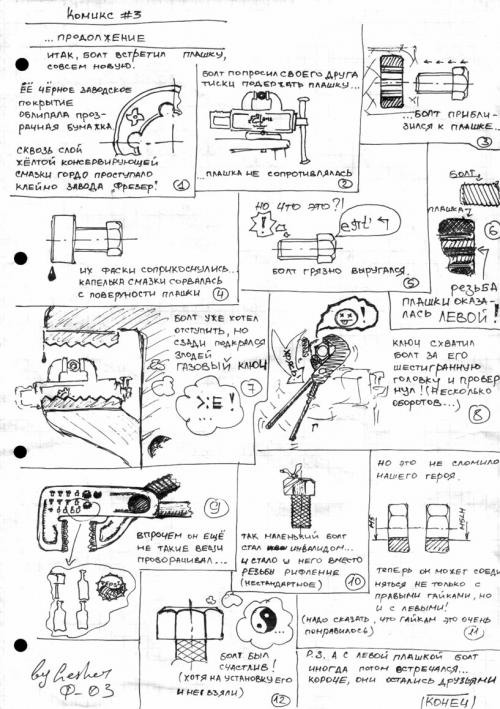 Комикс #3
...ПРОДОЛЖЕНИЕ
ИТАК, БОЛТ ВСТРЕТИЛ ПЛАШКУ,
СОВСЕМ НОВУЮ.
ЕЁ ЧЁРНОЕ ЗАВОДСКОЕ
ПОКРЫТИЕ
ОБЛИПАЛА ПРОЗ-
РАЧНАЯ БУМАЖКА
СКВОЗЬ СЛОЙ
ЖЁЛТОЙ КОНСЕРВИРУЮЩЕЙ
СМАЗКИ ГОРДО ПРОСТУПАЛО
КЛЕЙМО ЗАВОДА "ФРЕЗЕР"!
1
БОЛТ ПОПРОСИЛ СВОЕГО ДРУГА
ТИСКИ ПОДЕРЖАТЬ ПЛАШКУ...
...ПЛАШКА НЕ СОПРОТИВЛЯЛАСЬ
2
...БОЛТ ПРИБЛИ-
ЗИЛСЯ К ПЛАШКЕ...
3
ИХ ФАСКИ СОПРИКОСНУЛИСЬ...
КАПЕЛЬКА СМАЗКИ СОРВАЛАСЬ
С ПОВЕРХНОСТИ ПЛАШКИ
4
НО ЧТО ЭТО?!
!
БОЛТ ГРЯЗНО ВЫРУГАЛСЯ.
5
БОЛТ
ПЛАШКА
6
РЕЗЬБА
ПЛАШКИ ОКАЗА-
ЛАСЬ ЛЕВОЙ!
БОЛТ УЖЕ ХОТЕЛ
ОТСТУПИТЬ, НО
СЗАДИ ПОДКРАЛСЯ
ЗЛОДЕЙ
ГАЗОВЫЙ КЛЮЧ
7
!
КЛЮЧ СХВАТИЛ
БОЛТ ЗА ЕГО
ШЕСТИГРАННУЮ
ГОЛОВКУ И ПРОВЕР
НУЛ! (НЕСКОЛЬКО
ОБОРОТОВ...)
8
9
ВПРОЧЕМ ОН ЕЩЁ
НЕ ТАКИЕ ВЕЩИ
ПРОВОРАЧИВАЛ...
ТАК МАЛЕНЬКИЙ БОЛТ
СТАЛ ИНВАЛИДОМ...
И СТАЛО У НЕГО ВМЕСТО
РЕЗЬБЫ РИФЛЕНИЕ
(НЕСТАНДАРТНОЕ)
10
НО ЭТО НЕ СЛОМИЛО
НАШЕГО ГЕРОЯ.
М5
М5LH
ТЕПЕРЬ ОН МОЖЕТ СОЕДИ
НЯТЬСЯ НЕ ТОЛЬКО С
ПРАВЫМИ ГАЙКАМИ, НО
И С ЛЕВЫМИ!
(НАДО СКАЗАТЬ, ЧТО ГАЙКАМ ЭТО ОЧЕНЬ
ПОНРАВИЛОСЬ)
11
БОЛТ БЫЛ
СЧАСТЛИВ!
(ХОТЯ НА УСТАНОВКУ ЕГО
И НЕ ВЗЯЛИ)
12
P.S. А С ЛЕВОЙ ПЛАШКОЙ БОЛТ
ИНОГДА ПОТОМ ВСТРЕЧАЛСЯ...
КОРОЧЕ, ОНИ ОСТАЛИСЬ ДРУЗЬЯМИ
(КОНЕЦ)
by
Ф-03